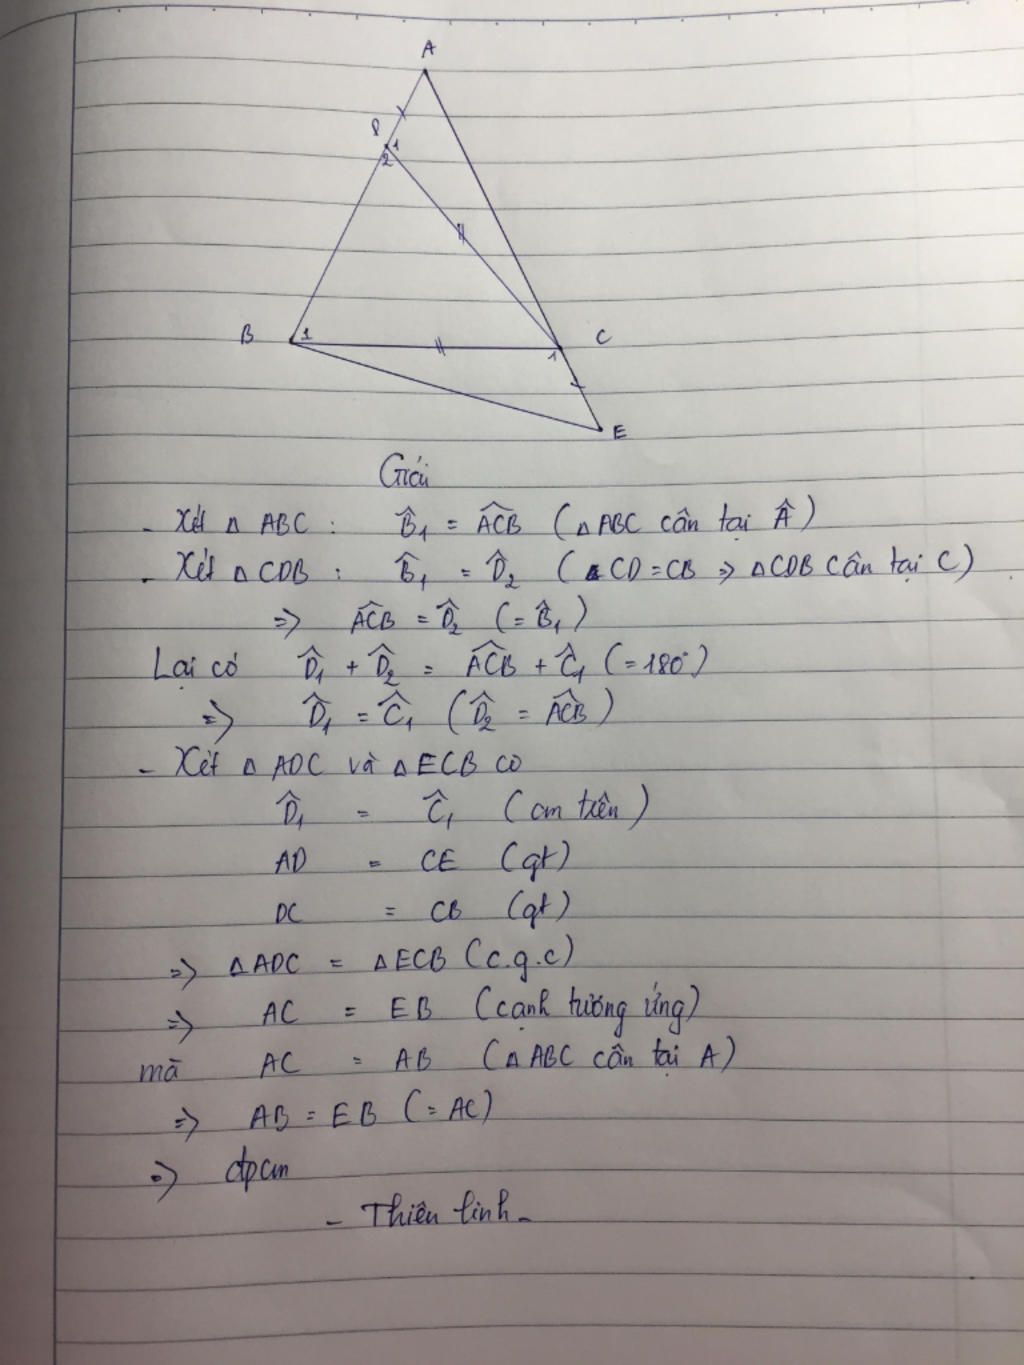 A
D
1
2
B
1
C
1
E
Giải
- Xét △ ABC : B̂₁ = ACB̂ (△ ABC cân tại Â)
- Xét △ CDB : B̂₁ = D̂₂ (CD = CB => △CDB cân tại C)
=> ACB̂ = D̂₂ (= B̂₁)
Lại có D̂₁ + D̂₂ = ACB̂ + Ĉ₁ (= 180°)
=> D̂₁ = Ĉ₁ (D̂₂ = ACB̂)
- Xét △ ADC và △ ECB có
D̂₁ = Ĉ₁ (cm trên)
AD = CE (gt)
DC = CB (gt)
=> △ADC = △ECB (c.g.c)
=> AC = EB (cạnh tương ứng)
mà AC = AB (△ ABC cân tại A)
=> AB = EB (= AC)
=> đpcm
- Thiên linh -